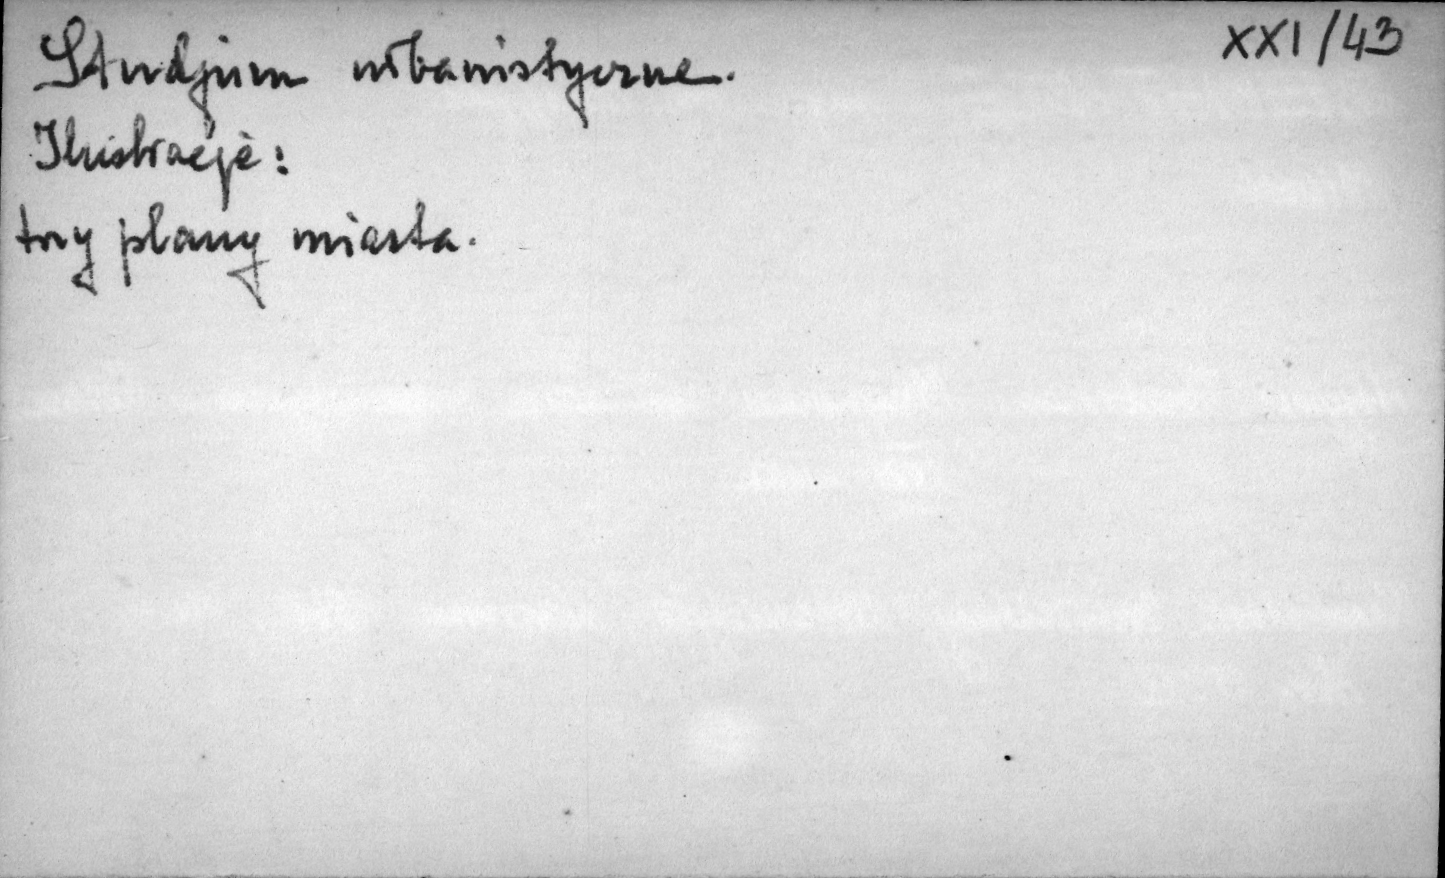 XXI/43
Studjum urbanistyczne.
Ilustracje:
trzy plany miasta.